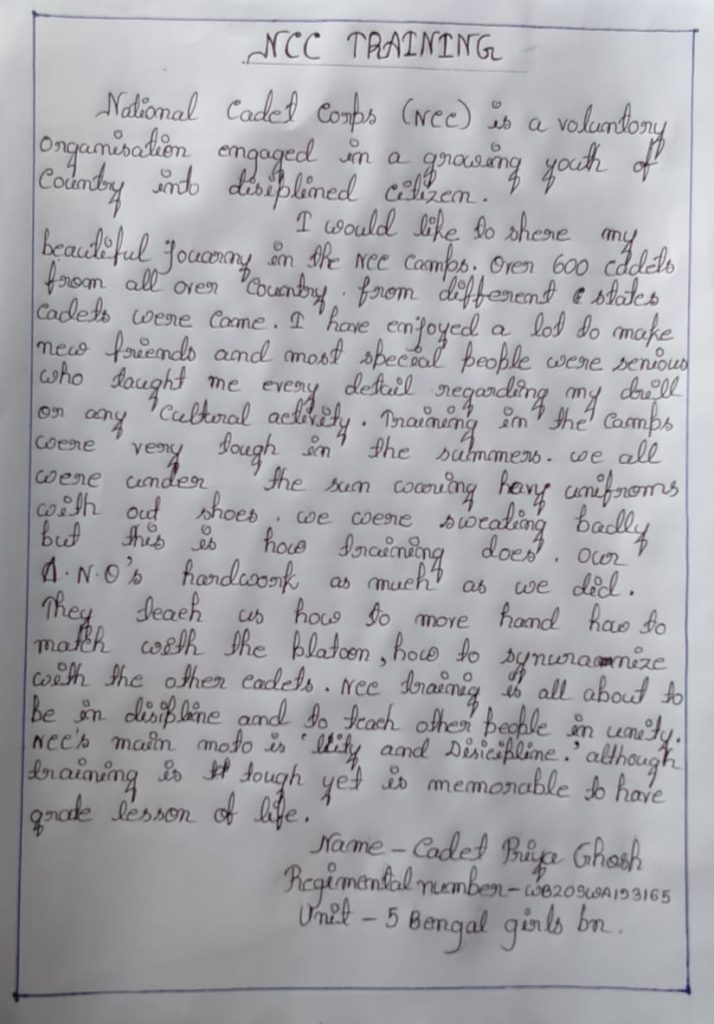 NCC TRAINING
National Cadet Corps (NCC) is a voluntory
Organisation engaged in a growing youth of
Country into disiplined citizen.
I would like to shere my
beautiful jouorny in the NCC Camps. Over 600 cadets
from all over country. from different states
Cadets were came. I have enjoyed a lot to make
new friends and most special people were senious
who taught me every detail regarding my drill
or any cultural activity. Training in the Camps
were very tough in the summers. we all
were under the sun waring havy unifroms
with out shoes. we were sweating badly
but this is how training does. our
A.N.O's hardwork as much as we did.
They teach us how to more hand how to
match with the platoon, how to
with the other cadets. NCC trainig is all about to
be in disipline and to teach other people in unity.
NCC's main moto is and Disicipline.' although
training is tough yet is memorable to have
grate lesson of life.
Name - Cadet Priya Ghosh
Regimental number - WB20SWA193165
Unit - 5 Bengal girls bn.